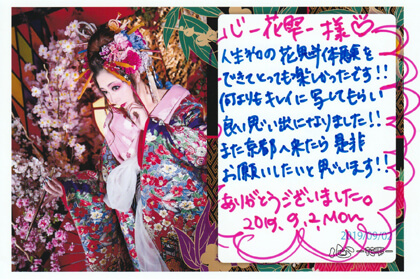 心-花雫- 様♡
人生初の花魁体験を
できてとっても楽しかったです!!
何よりもキレイに写してもらい
良い思い出になりました!!
また京都へ来たら是非
お願いしたいと思います!!
ありがとうございました。
2019.9.2.Mon.
2019/09/02